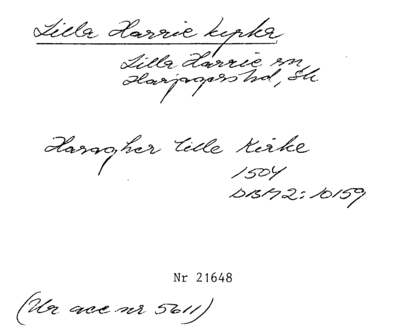 Lilla Harrie kyrka
Lilla Harrie sn,
Harjagers hd, Sk
Haragher Lille Kirke
1504
DBM2:10159
Nr 21648
(Ur acc nr 5611)